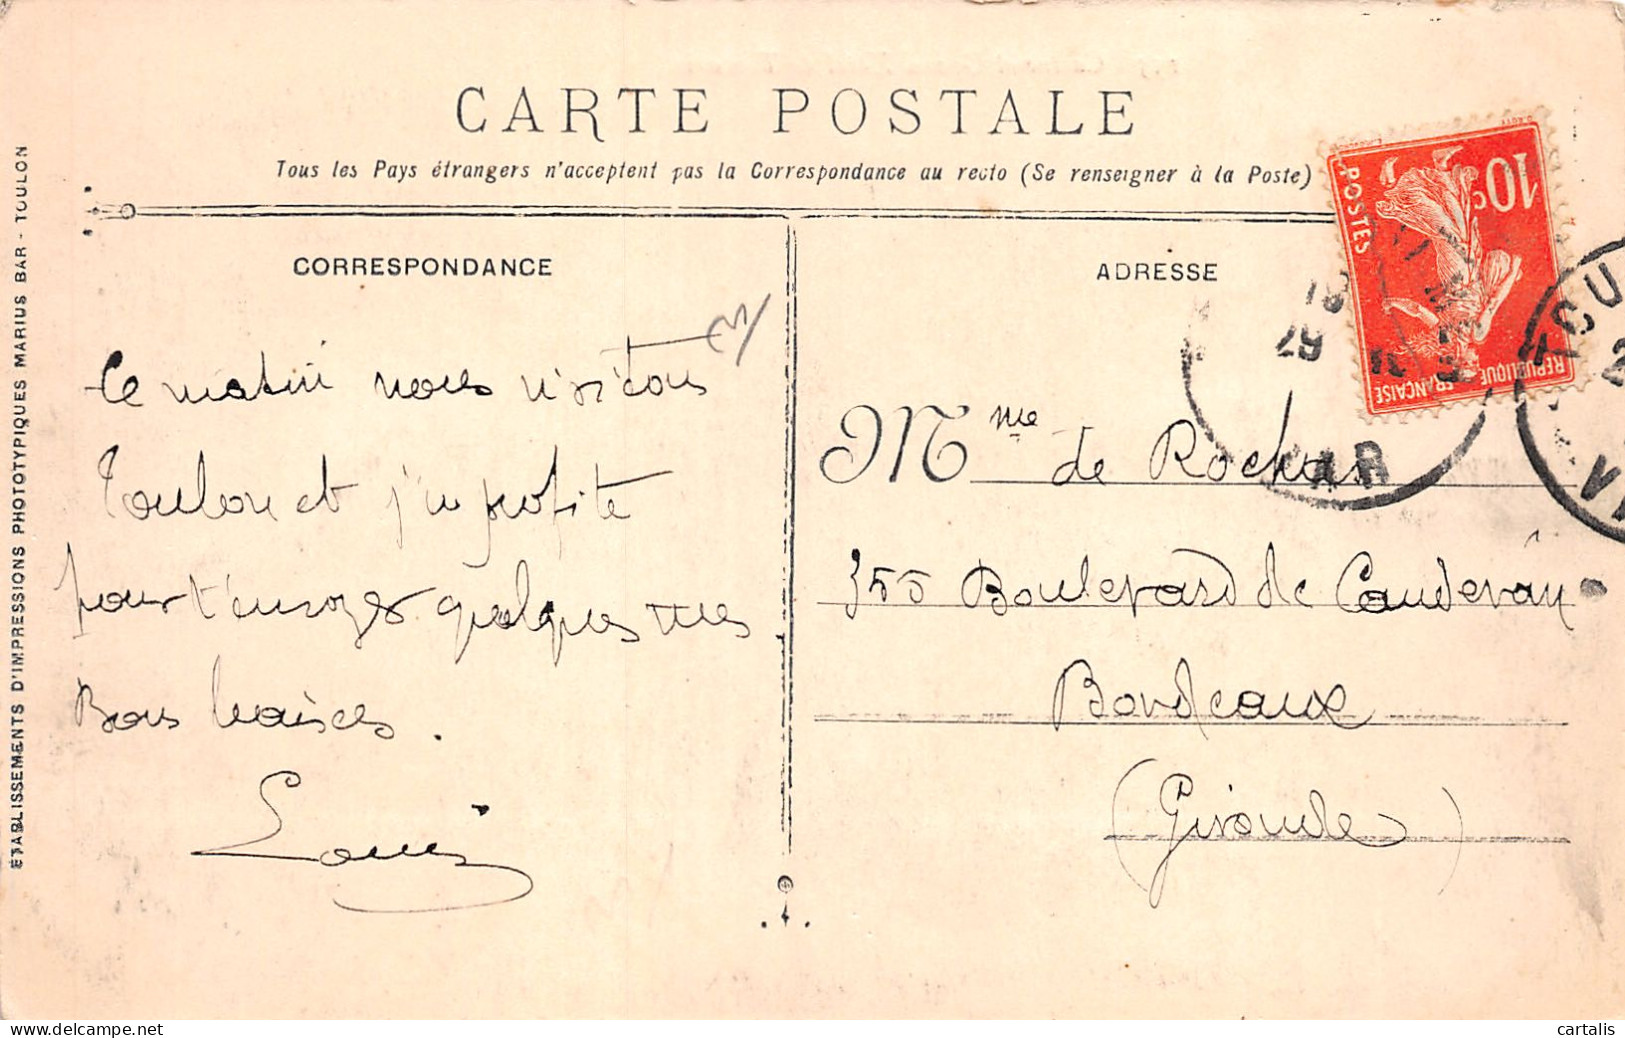 CARTE POSTALE
Tous les Pays étrangers n'acceptent pas la Correspondance au recto (Se renseigner à la Poste)
CORRESPONDANCE
Ce matin nous visitons
Toulon et j'en profite
pour t'envoyer quelques vues
Bons baisers.
Louis
ADRESSE
Mme de Rochas
355 Boulevard de Caudéran
Bordeaux
(Gironde)
10c
POSTES
REPUBLIQUE FRANÇAISE
VAR
ÉTABLISSEMENTS D'IMPRESSIONS PHOTOTYPIQUES MARIUS BAR - TOULON
cartalis